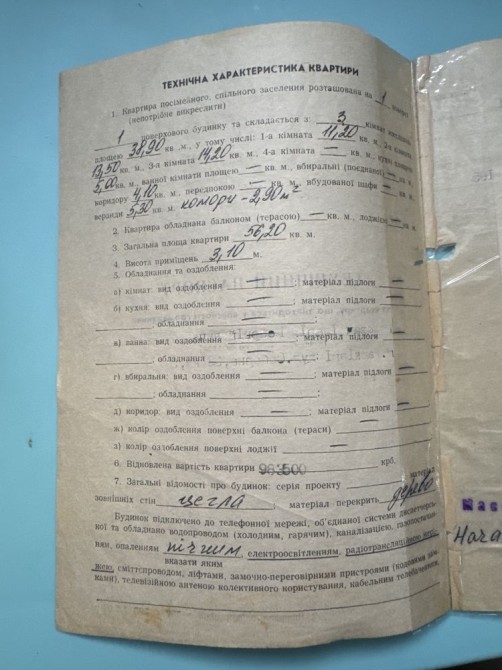 ТЕХНІЧНА ХАРАКТЕРИСТИКА КВАРТИРИ
1. Квартира посімейного, спільного заселення розташована на 1
(непотрібне викреслити)
1 поверхового будинку та складається з: 3 кімнат
площею 38,90 кв. м., у тому числі: 1-а кімната 11,20 кв. м., 2-а кімната
13,50 кв. м., 3-а кімната 14,20 кв. м., 4-а кімната — кв. м., кухні площею
5,00 кв. м., ванної кімнати площею — кв. м., вбиральні (поєднаної) — кв. м.
коридору 4,10 кв. м., передпокою — кв. м., вбудованої шафи — кв. м.
веранди 5,30 кв. м. комори – 2,90 м²
2. Квартира обладнана балконом (терасою) — кв. м., лоджією — кв. м.
3. Загальна площа квартири 56,20 кв. м.
4. Висота приміщень 3,10 м.
5. Обладнання та оздоблення:
а) кімнат: вид оздоблення — ; матеріал підлоги —
б) кухня: вид оздоблення — ; матеріал підлоги —
; обладнання —
в) ванна: вид оздоблення — ; матеріал підлоги —
; обладнання —
г) вбиральня: вид оздоблення — ; матеріал підлоги —
; обладнання — ;
д) коридор: вид оздоблення — ; матеріал підлоги —
ж) колір оздоблення поверхні балкона (тераси) —
з) колір оздоблення поверхні лоджії —
6. Відновлена вартість квартири крб.
7. Загальні відомості про будинок: серія проекту матеріал
зовнішніх стін цегла, матеріал перекрить дерево
Будинок відключено до телефонної мережі, об'єднаної системи
ної та обладнано водопроводом (холодним, гарячим), каналізацією,
ням, опаленням пічним, електроосвітленням, радіотрансляційною
вказати яким
жею, сміттєпроводом, ліфтами, замочно-переговорними пристроями (кодовими
ками), телевізійною антеною колективного користування, кабельним телебаченням.